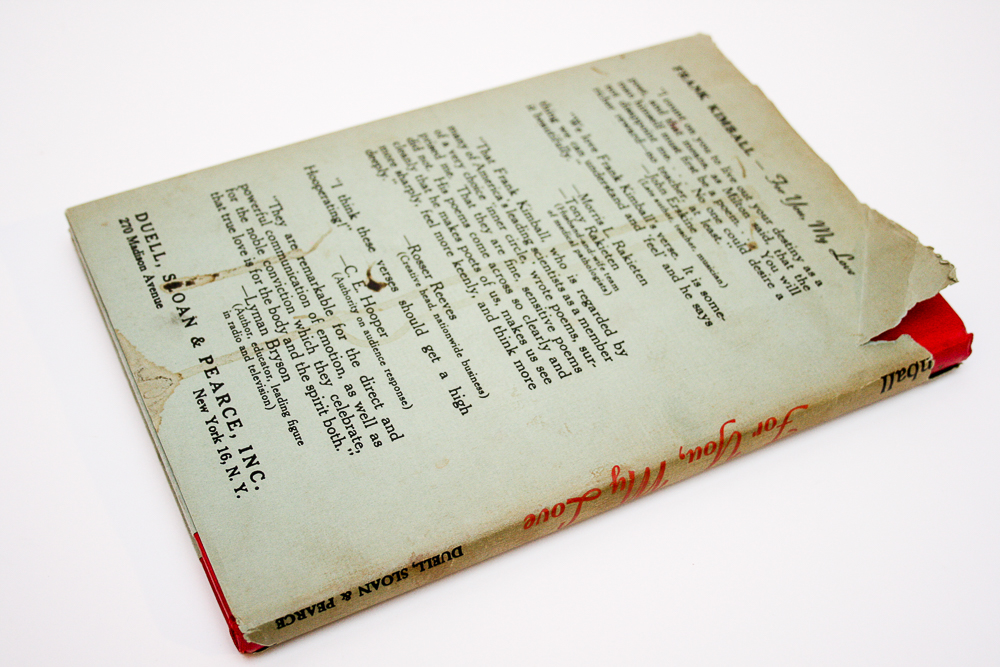 FRANK KIMBALL — For You, My Love
"I count on you to live out your destiny as a
poet, and that means as Milton said that the
man himself must first be a poem. You will
not disappoint me. . . . No one could desire a
richer reward—no teacher, at least."
—John Erskine
(Author, teacher, musician)
"We love Frank Kimball's verse. It is some-
thing we can understand and feel and he says
it beautifully."
—Morris L. Rakieten
—Tony Rakieten
"That Frank Kimball who is regarded by
many of America's leading scientists as a member
of a very choice inner circle, wrote poems, sur-
prised me. That they are fine, sensitive poems
did not. His poems come across so clearly and
cleanly that he makes poets of us, makes us see
more sharply, feel more keenly, and think more
deeply."
—Rosser Reeves
(Cousin head, nationwide business)
"I think these verses should get a high
Hooperating!"
—C. E. Hooper
(Authority on audience response)
"They are remarkable for the direct and
powerful communication of emotion, as well as
for the noble conviction which they celebrate,
that true love is for the body and the spirit both."
—Lyman Bryson
(Author, educator, leading figure
in radio and television)
DUELL, SLOAN & PEARCE, INC.
270 Madison Avenue New York 16, N. Y.
nball
For You, My Love
DUELL, SLOAN & PEARCE